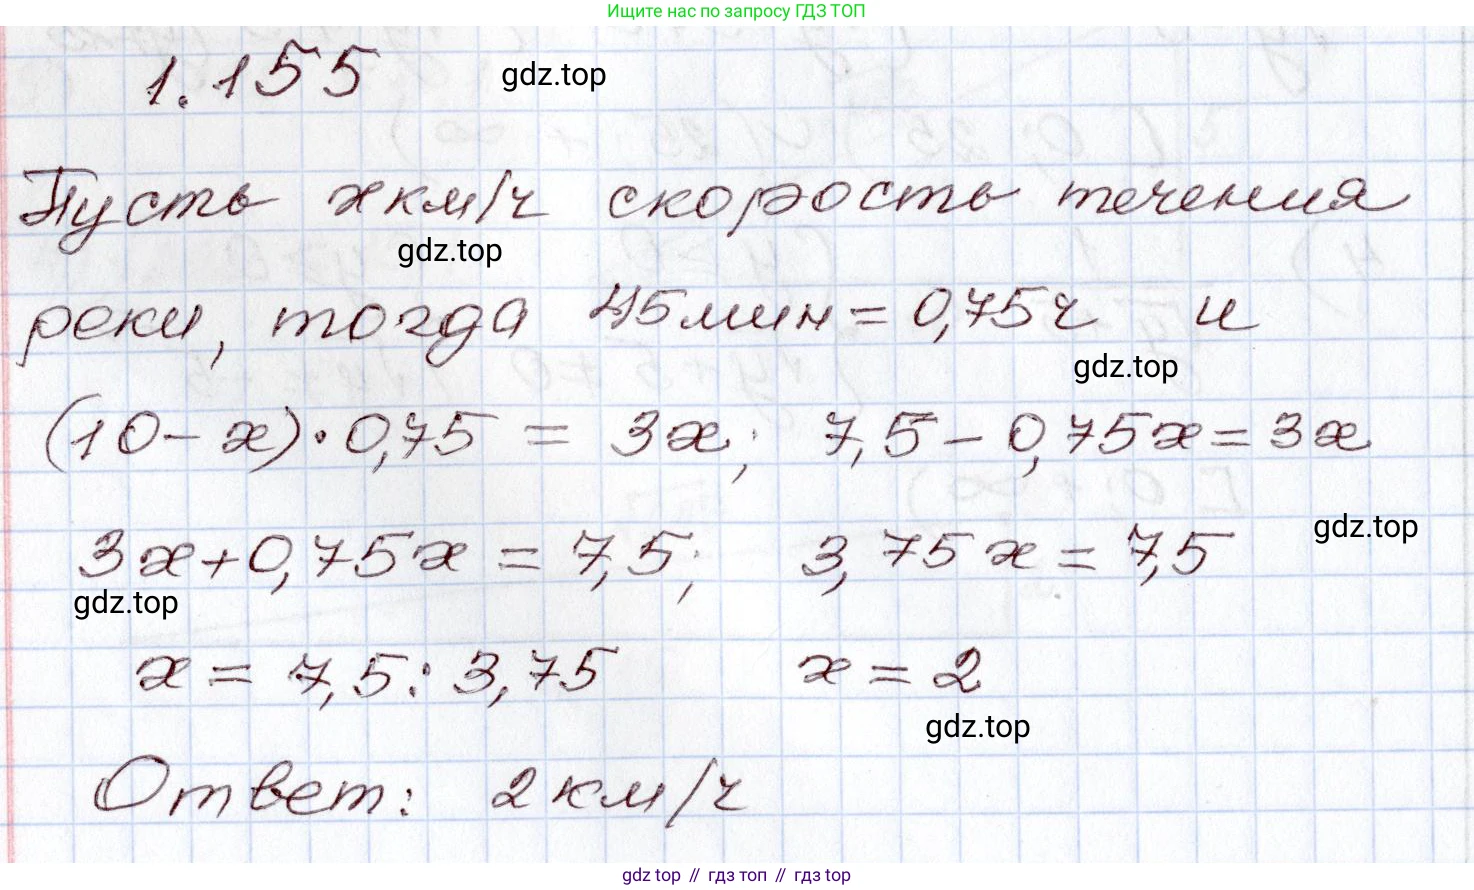 Ищите нас по запросу ГДЗ ТОП
1.155
gdz.top
Пусть x км/ч скорость течения
gdz.top
реки, тогда 45мин = 0,75ч и
gdz.top
(10 - x) · 0,75 = 3x; 7,5 - 0,75x = 3x
gdz.top
3x + 0,75x = 7,5; 3,75x = 7,5
gdz.top
x = 7,5 : 3,75 x = 2
gdz.top
Ответ: 2 км/ч
gdz.top // гдз топ // гдз top